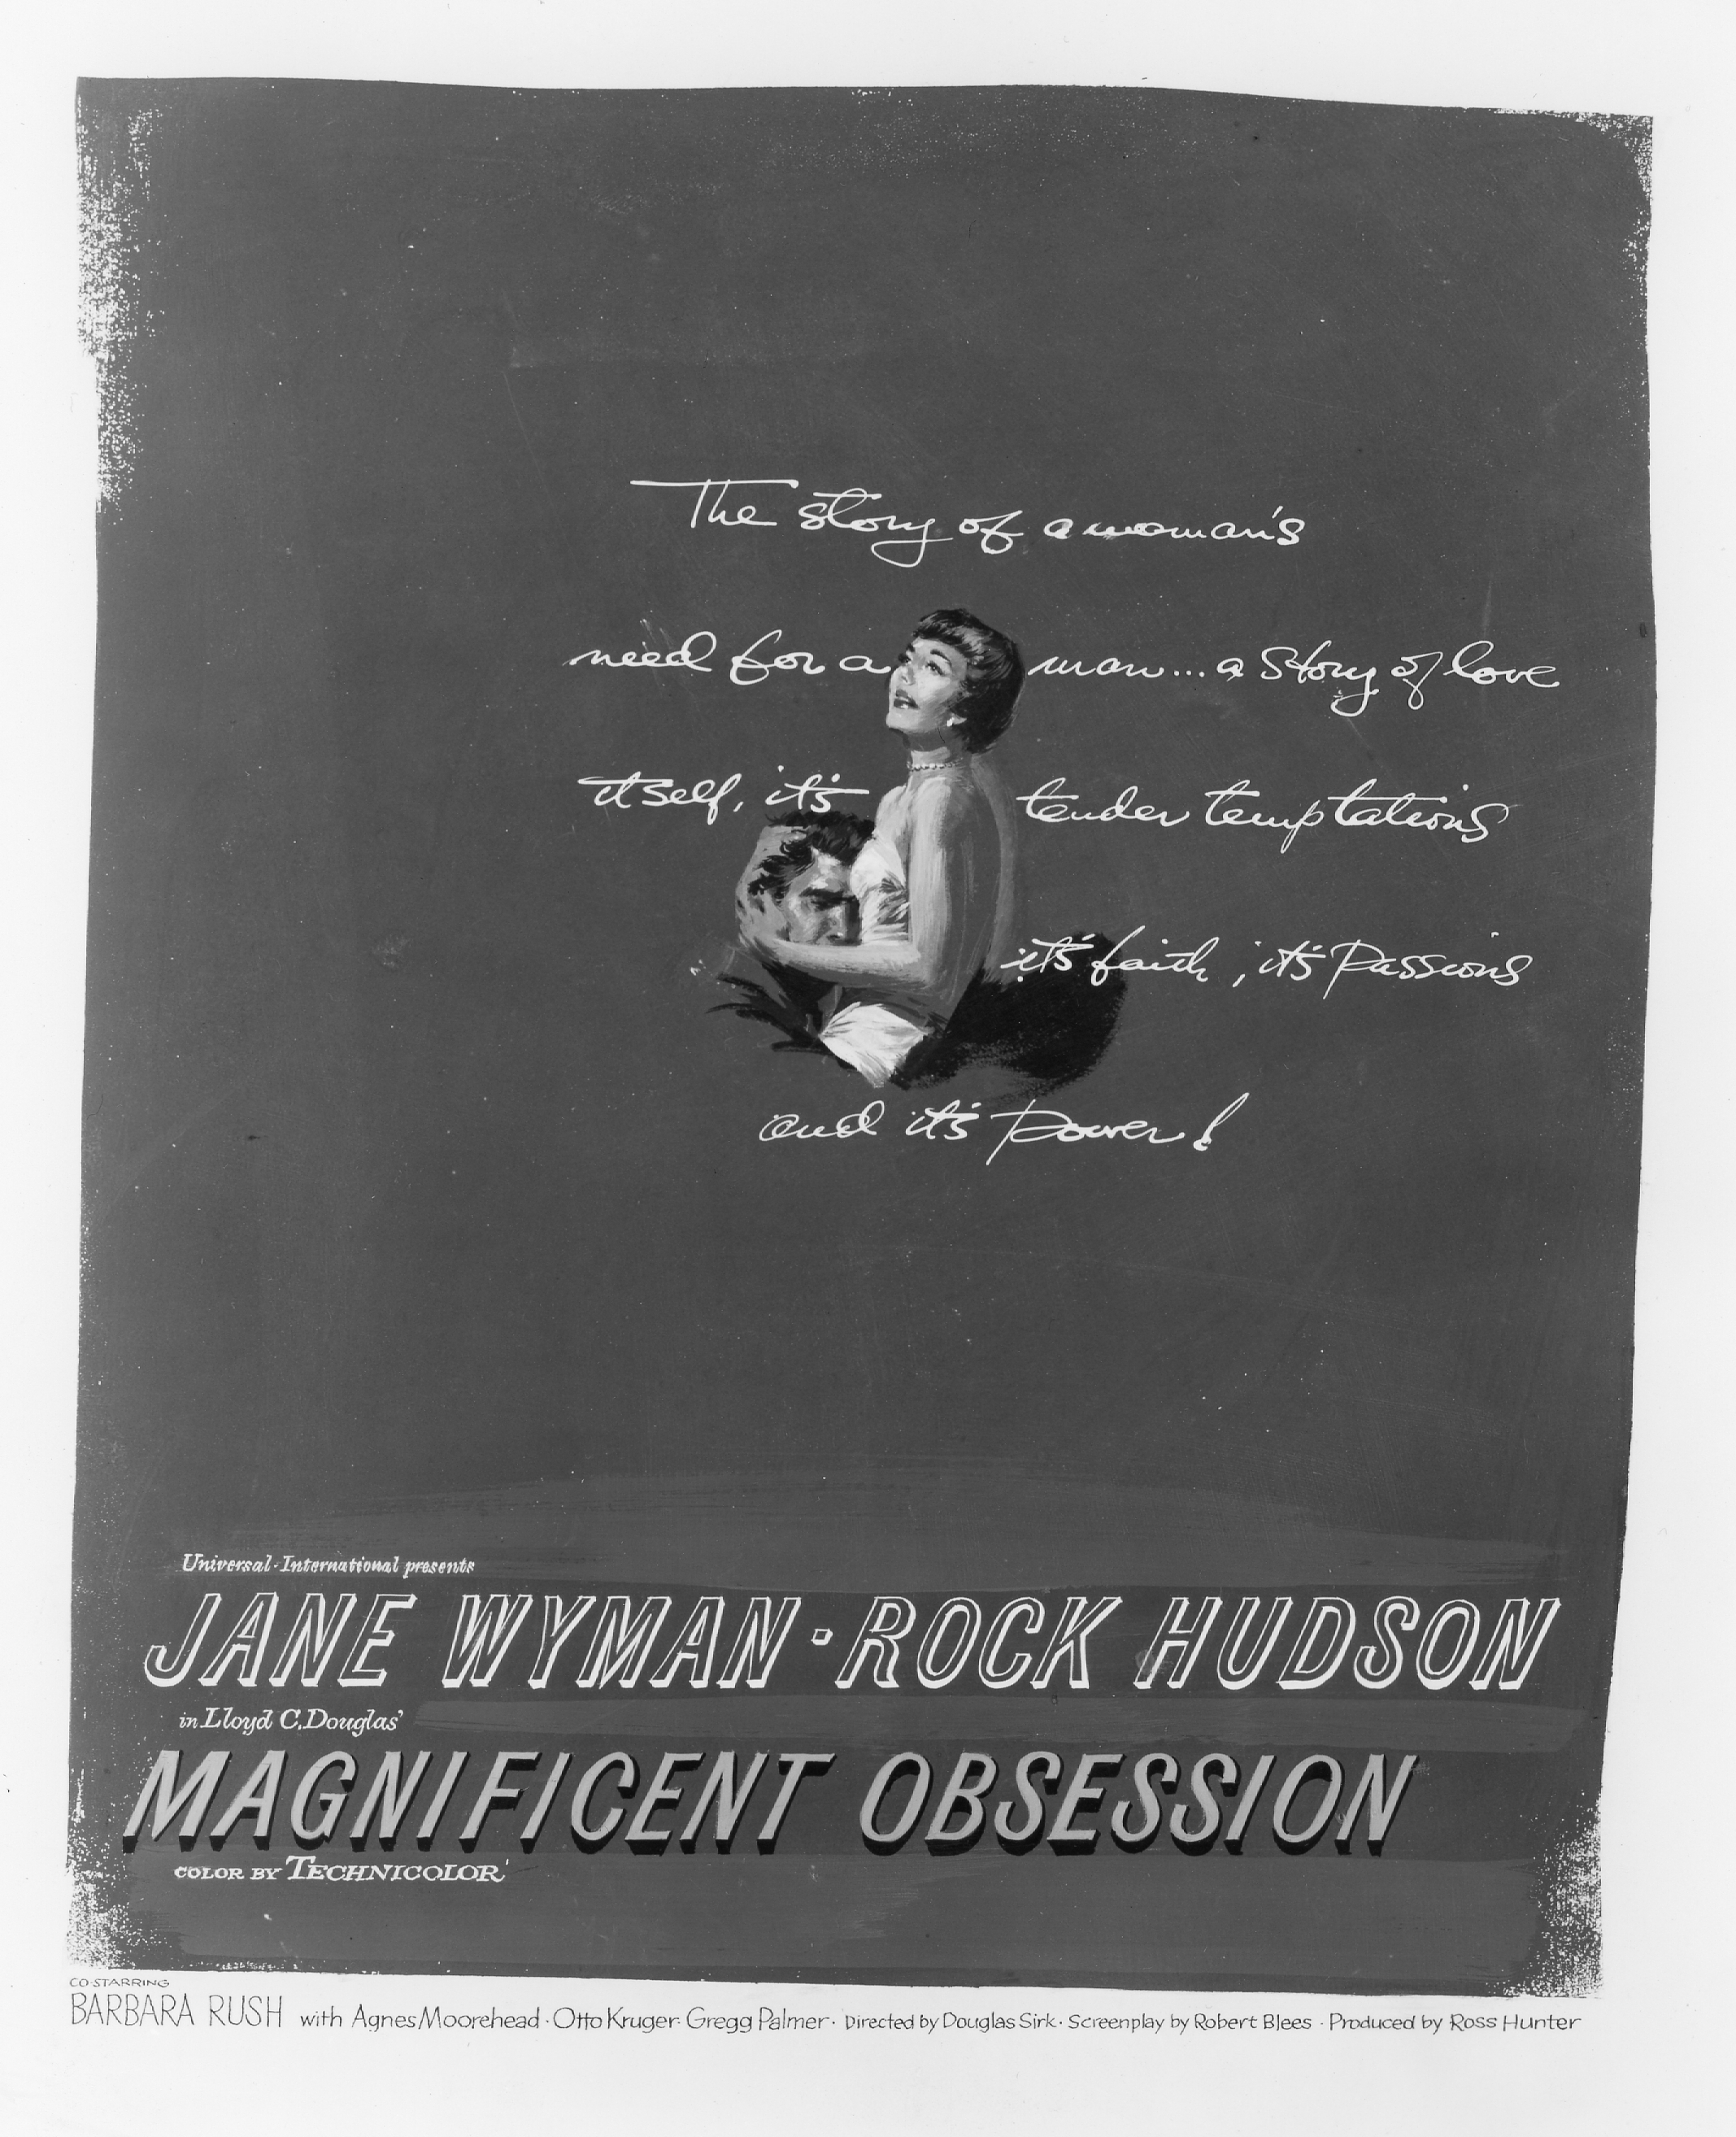 The story of a woman's
need for a man... a story of love
itself, it's tender temptations
it's faith, it's passions
and it's power!
Universal-International presents
JANE WYMAN · ROCK HUDSON
in Lloyd C. Douglas'
MAGNIFICENT OBSESSION
COLOR BY TECHNICOLOR
CO-STARRING
BARBARA RUSH with Agnes Moorehead · Otto Kruger · Gregg Palmer · Directed by Douglas Sirk · Screenplay by Robert Blees · Produced by Ross Hunter